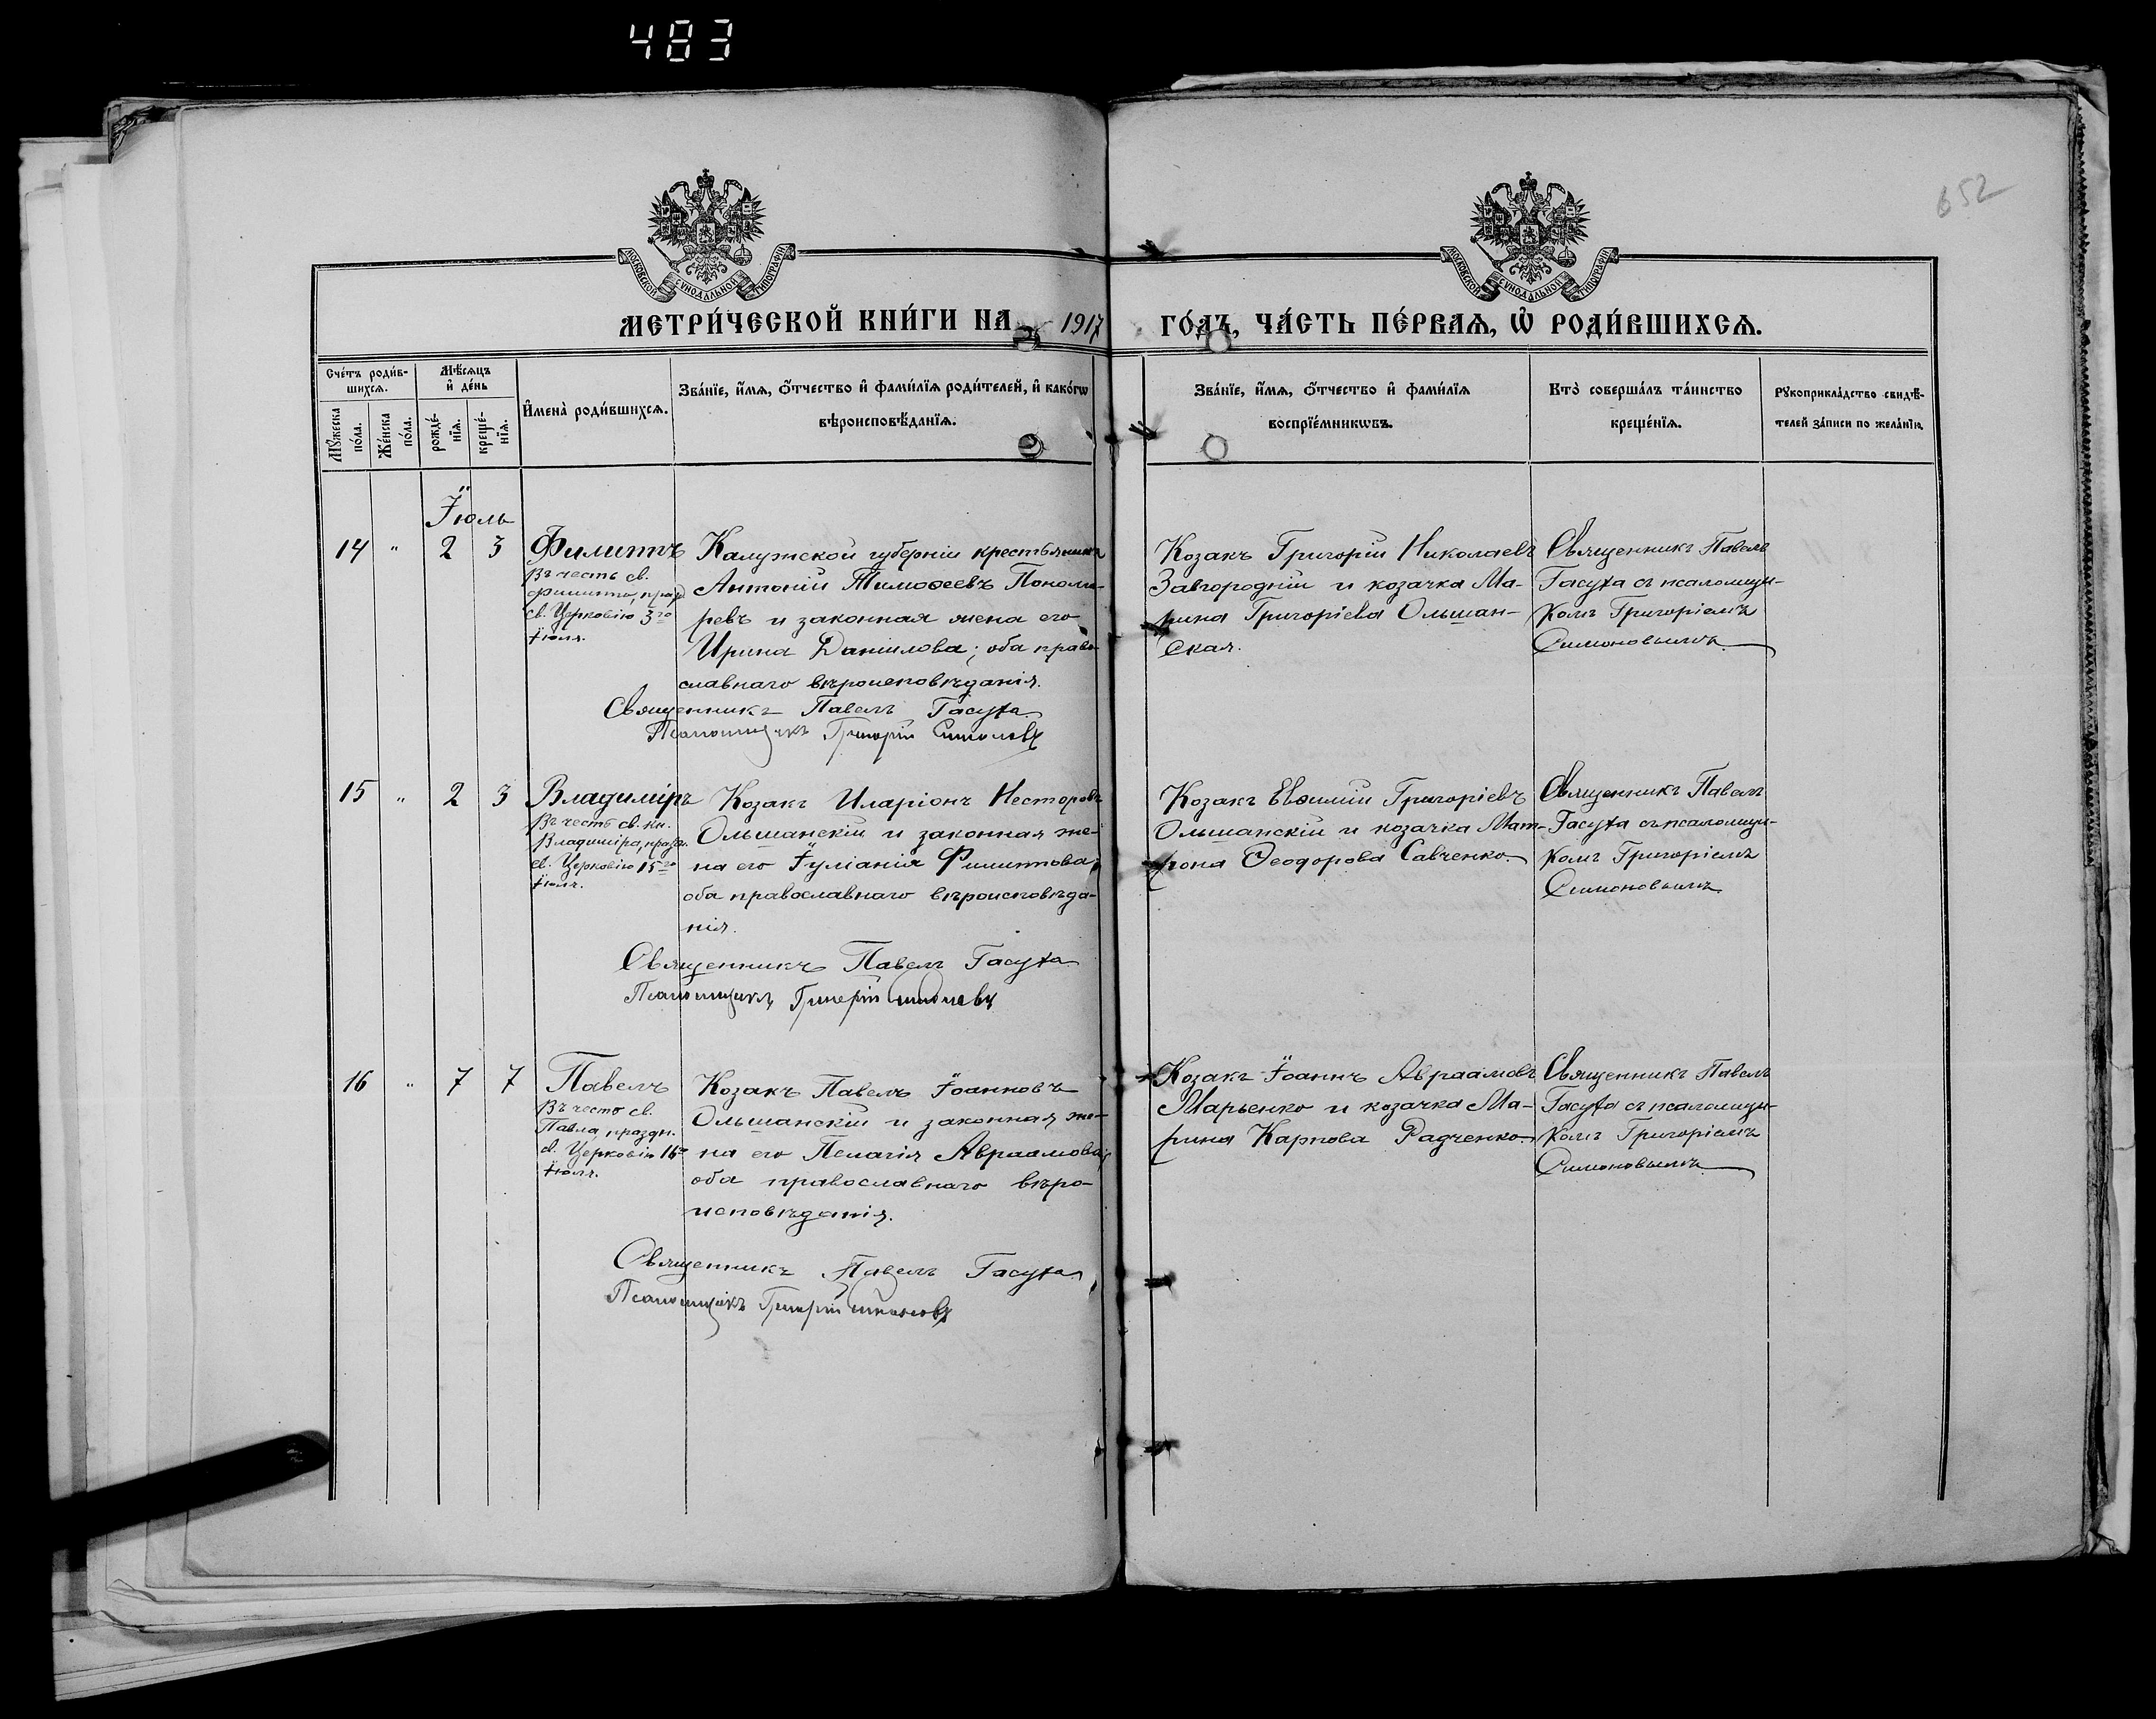 483
652
МОСКОВСКОЙ СѴНОДАЛЬНОЙ ТИПОГРАФІИ
МОСКОВСКОЙ СѴНОДАЛЬНОЙ ТИПОГРАФІИ
МЕТРИ́ЧЕСКОЙ КНИ́ГИ НА 1917 ГО́ДЪ, ЧА́СТЬ ПЕ́РВАѦ, Ѡ҆ РОДИ́ВШИХСѦ.
Сче́тъ роди́в-
шихсѧ.
Мꙋ́жеска
по́ла.
Же́нска
по́ла.
Мѣ́сѧцъ
и҆ де́нь
рожде́-
нїѧ.
креще́-
нїѧ.
И҆мена̀ роди́вшихсѧ.
Зва́нїе, и҆́мѧ, ѻ҆́тчество и҆ фами́лїѧ роди́телей, и҆ како́гѡ
вѣроисповѣ́данїѧ.
Зва́нїе, и҆́мѧ, ѻ҆́тчество и҆ фами́лїѧ
воспрїе́мникѡвъ.
Кто̀ соверша́лъ та́инство
креще́нїѧ.
Рꙋкоприкла́дство свидѣ́-
телей за́писи по жела́нїю.
Іюль
14 " 2 3
Филиппъ
Въ честь св.
Филиппа, празд.
св. Церковію 3го
Іюля.
Калужской губерніи крестьянинъ
Антоній Тимоѳеевъ Понома-
ревъ и законная жена его
Ирина Даніилова; оба право-
славнаго вѣроисповѣданія.
Священникъ Павелъ Гасуха
Псаломщикъ Григорій Симоновъ
Козакъ Григорій Николаевъ
Завгородній и козачка Ма-
рина Григоріева Ольшан-
ская.
Священникъ Павелъ
Гасуха съ псаломщи-
комъ Григоріемъ
Симоновымъ
15 " 2 3
Владиміръ
Въ честь св. кн.
Владиміра, празд.
св. Церковію 15го
Іюля.
Козакъ Иларіонъ Несторовъ
Ольшанскій и законная же-
на его Іуліанія Филиппова;
оба православнаго вѣроисповѣда-
нія.
Священникъ Павелъ Гасуха
Псаломщикъ Григорій Симоновъ
Козакъ Евѳимій Григоріевъ
Ольшанскій и козачка Мат-
рона Ѳеодорова Савченко.
Священникъ Павелъ
Гасуха съ псаломщи-
комъ Григоріемъ
Симоновымъ
16 " 7 7
Павелъ
Въ честь св.
Павла, праздн.
св. Церковію 16го
Іюля.
Козакъ Павелъ Іоанновъ
Ольшанскій и законная же-
на его Пелагія Авраамова;
оба православнаго вѣро-
исповѣданія.
Священникъ Павелъ Гасуха
Псаломщикъ Григорій Симоновъ
Козакъ Іоаннъ Авраамовъ
Марьенко и козачка Ма-
рина Карпова Радченко
Священникъ Павелъ
Гасуха съ псаломщи-
комъ Григоріемъ
Симоновымъ